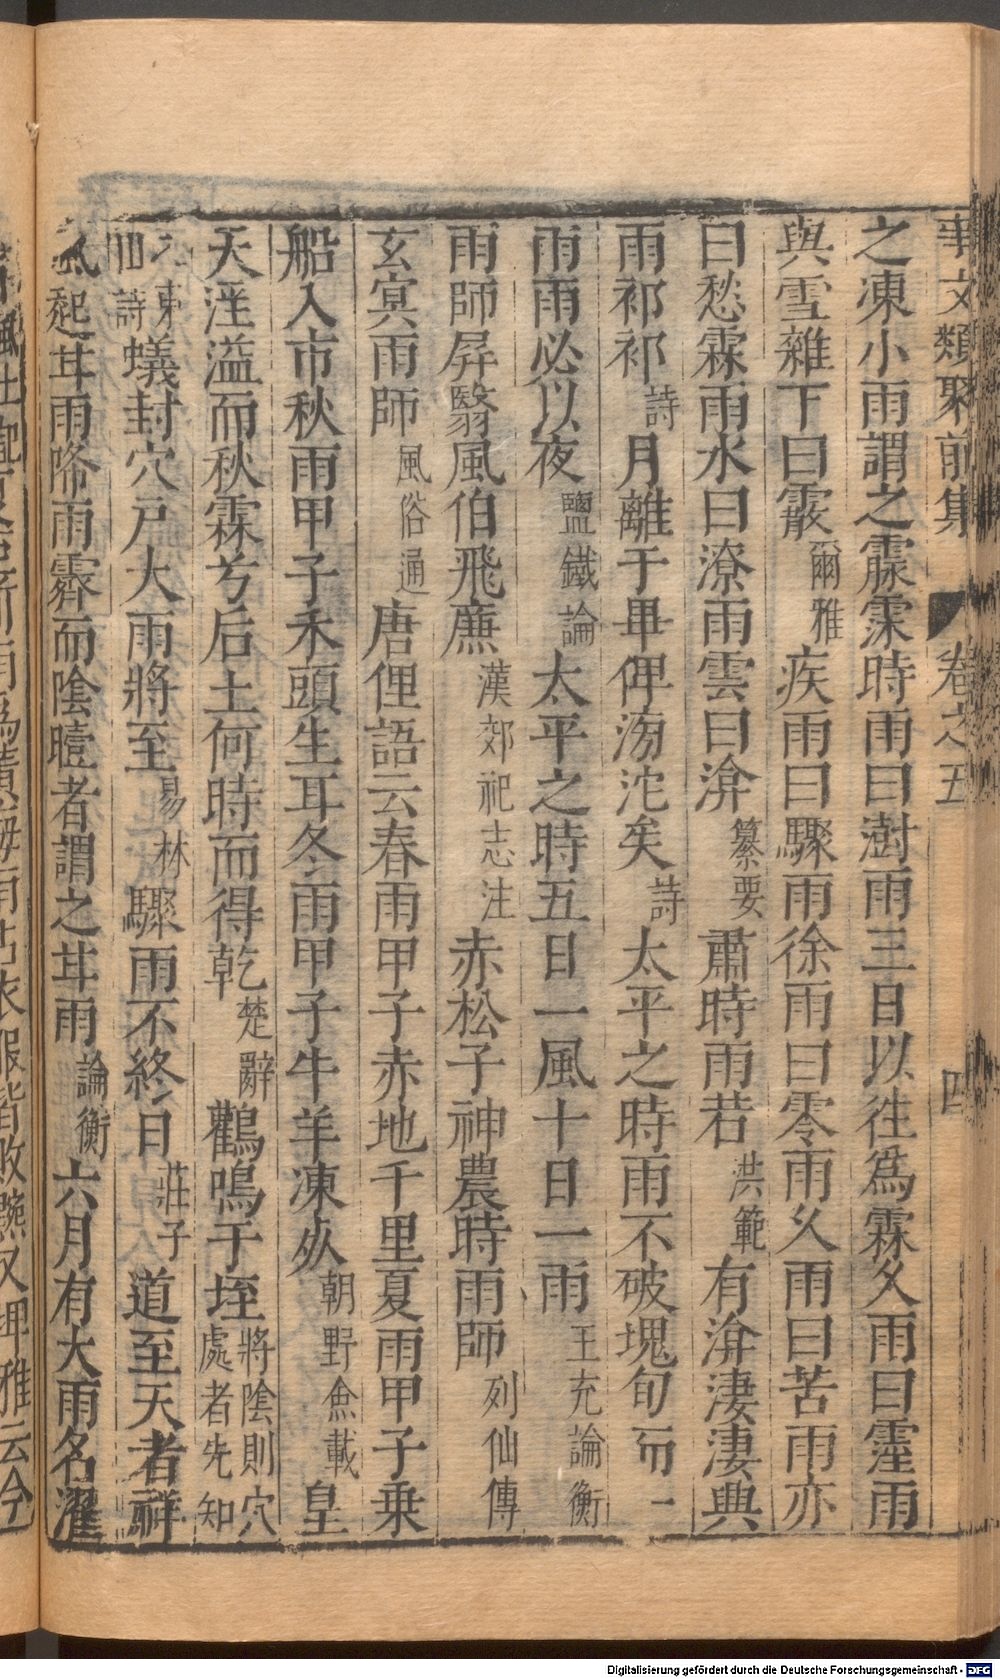 事文類聚前集 卷之五 四
之凍小雨謂之霡霂時雨曰澍雨三日以往爲霖久雨曰霪雨
與雪雜下曰霰爾雅疾雨曰驟雨徐雨曰零雨久雨曰苦雨亦
曰愁霖雨水曰潦雨雲曰渰纂要肅時雨若洪範有渰淒淒興
雨祁祁詩月離于畢俾滂沱矣詩太平之時雨不破塊旬而一
雨雨必以夜鹽鐵論太平之時五日一風十日一雨王充論衡
雨師屛翳風伯飛廉漢郊祀志注赤松子神農時雨師列仙傳
玄冥雨師風俗通唐俚語云春雨甲子赤地千里夏雨甲子乗
船入市秋雨甲子禾頭生耳冬雨甲子牛羊凍死朝野僉載皇
天淫溢而秋霖兮后土何時而得乾楚辭鸛鳴于垤將陰則穴處者先知
東詩蟻封穴戸大雨將至易林驟雨不終日莊子道至天者祥
風起甘雨降雨霽而陰曀者謂之甘雨論衡六月有大雨名濯